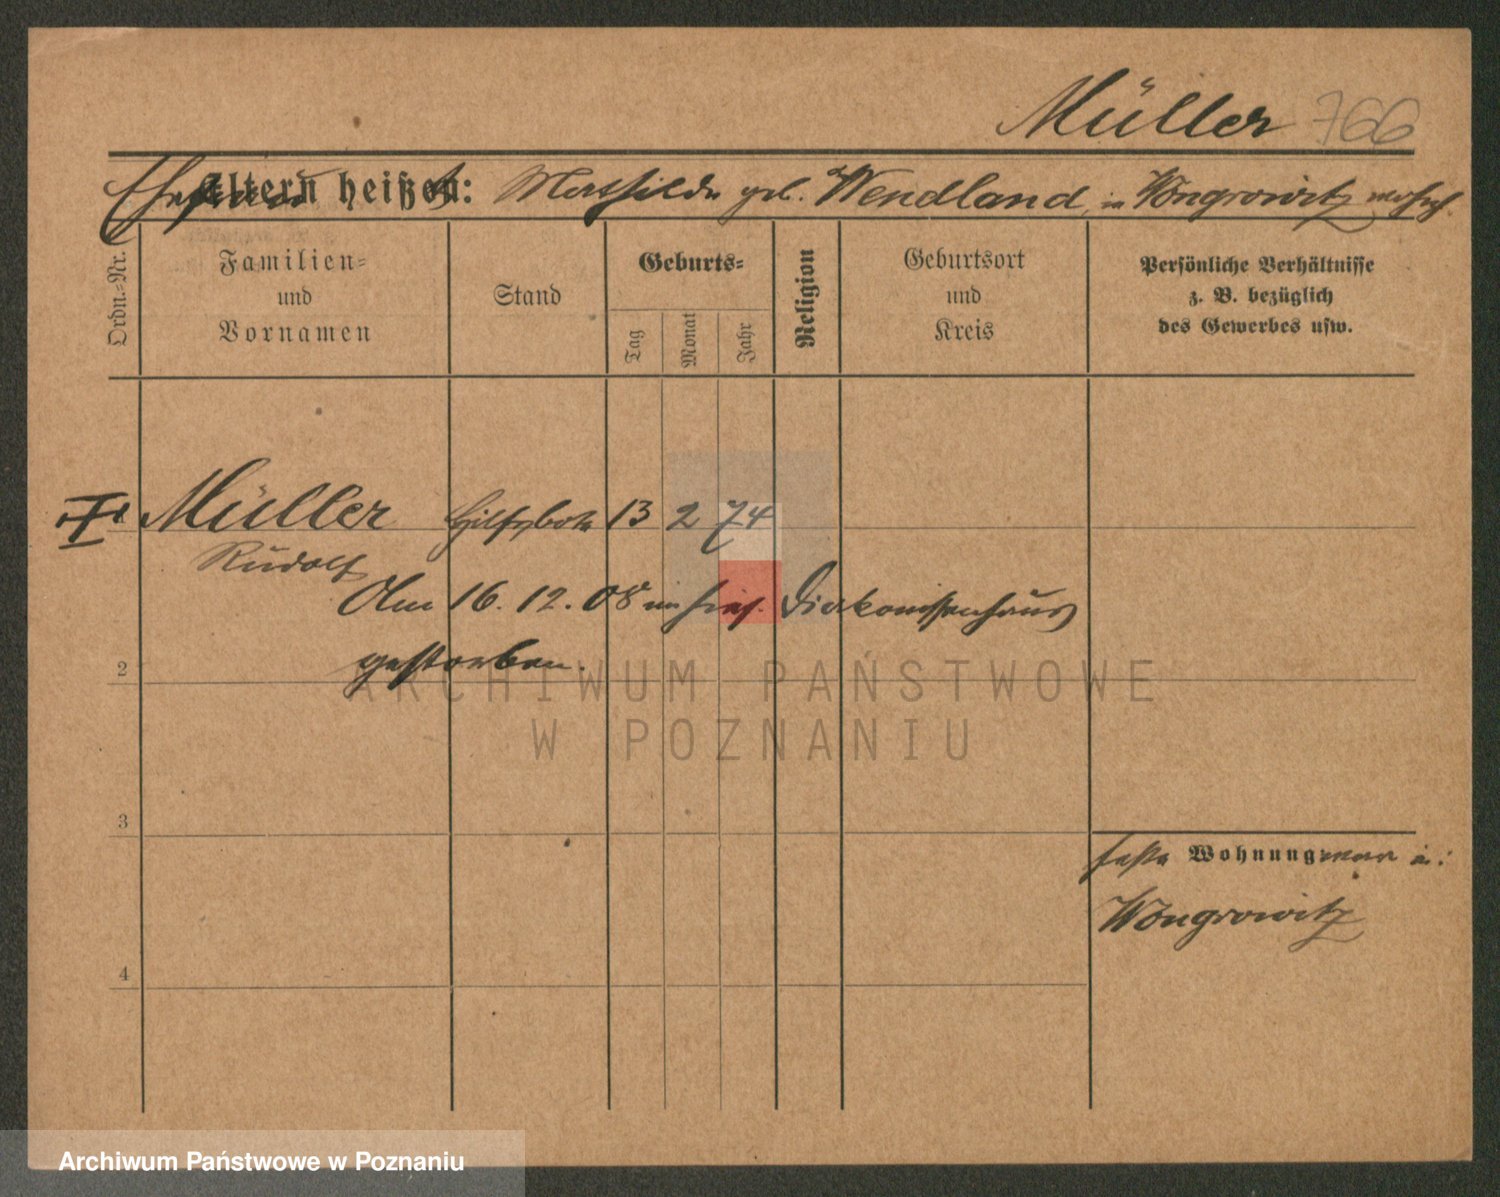 Müller 766
Ehefrau heißt: Mathilde geb. Wendland, in Wongrowitz wohnh.
Eltern heißen:
Ordn.-Nr.
Familien-
und
Vornamen
Stand
Geburts-
Tag
Monat
Jahr
Religion
Geburtsort
und
Kreis
Persönliche Verhältnisse
z. B. bezüglich
des Gewerbes usw.
Müller Hilfsbote 13 2 74
Rudolf
Am 16. 12. 08 im hies. Diakonissenhaus
gestorben.
2
3
4
feste Wohnung war in:
Wongrowitz
ARCHIWUM PAŃSTWOWE
W POZNANIU
Archiwum Państwowe w Poznaniu